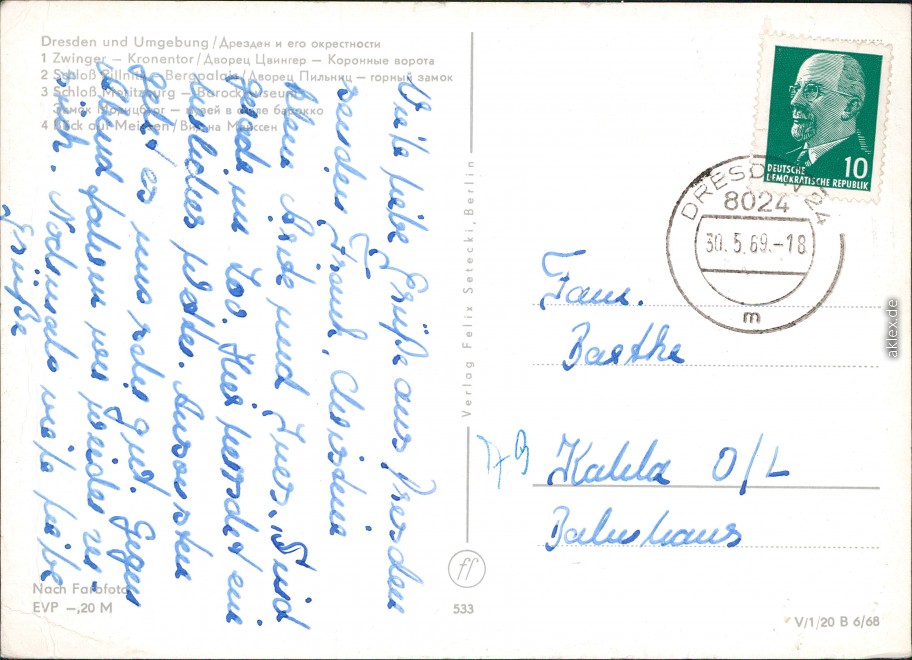 Dresden und Umgebung / Дрезден и его окрестности
1 Zwinger – Kronentor / Дворец Цвингер – Коронные ворота
2 Schloß Pillnitz – Bergpalais / Дворец Пильниц – горный замок
3 Schloß Moritzburg – Barockmuseum
Замок Морицбург – музей в стиле барокко
4 Blick auf Meißen / Вид на Мейссен
Viele liebe Grüße aus Dresden
senden Frank, Christina
Beate und
gerade im Zoo. Hier herrscht ein
herrliches Wetter. Ansonsten
geht es uns sehr gut. Gegen
Abend fahren wir wieder zu-
rück. Nochmals viele liebe
Grüße
Nach Farbfoto
EVP –,20 M
Verlag Felix Setecki, Berlin
ff
533
DEUTSCHE
DEMOKRATISCHE REPUBLIK
10
DRESDEN
8024
30.5.69.-18
m
Fam.
Barthe
Kahla O/L
Bahnhaus
V/1/20 B 6/68
aklex.de